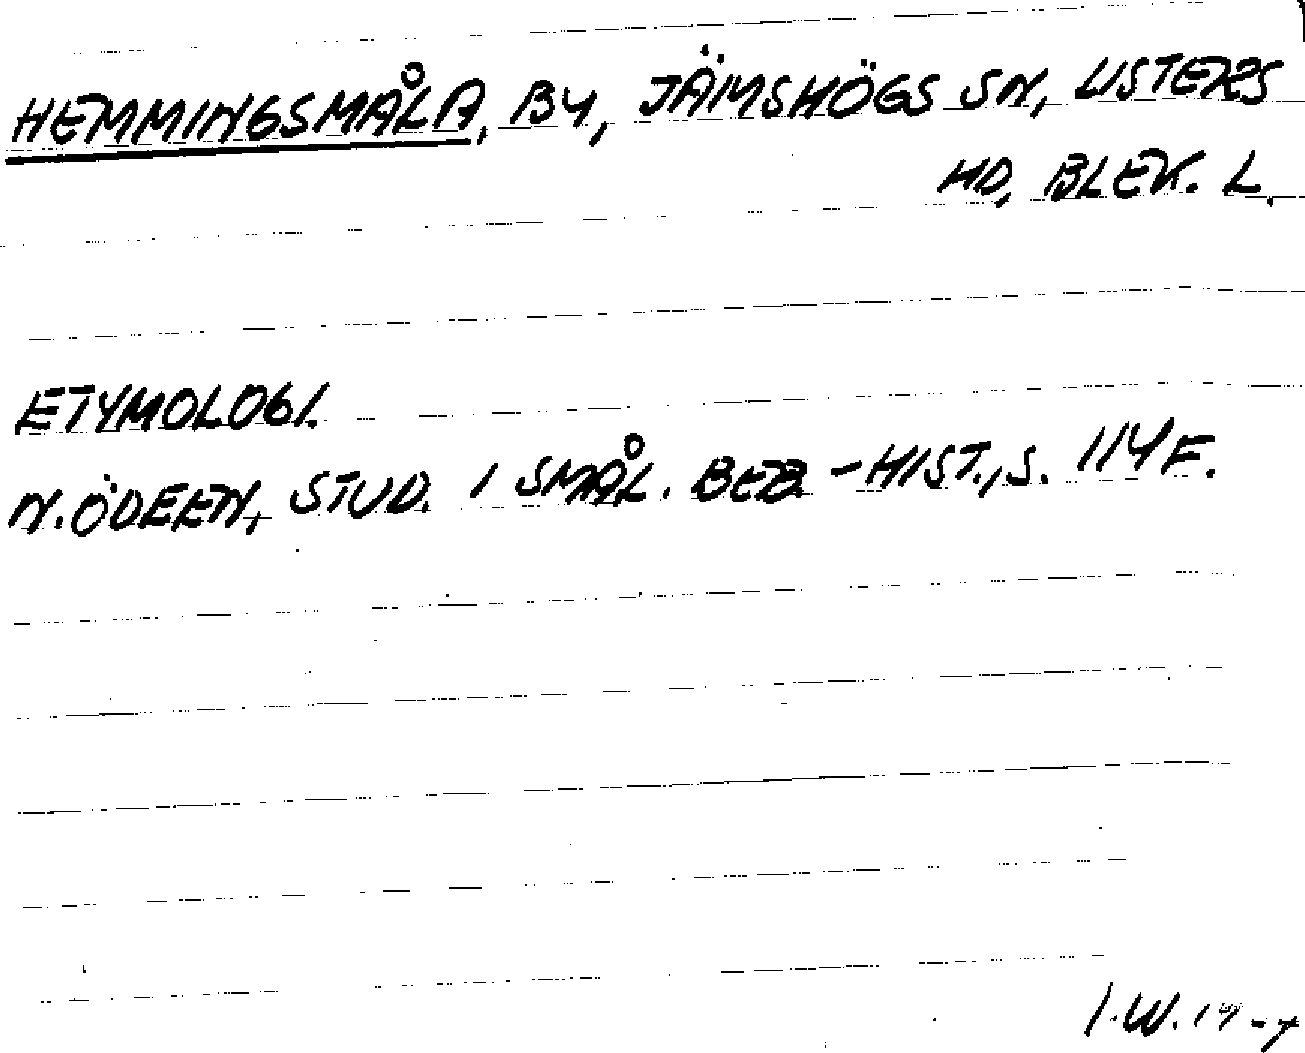 HEMMINGSMÅLA, BY, JÄMSHÖGS SN, LISTERS
HD, BLEK. L.
ETYMOLOGI.
N. ÖDEEN, STUD. I SMÅL. BEB.-HIST., S. 114 F.
I.W.